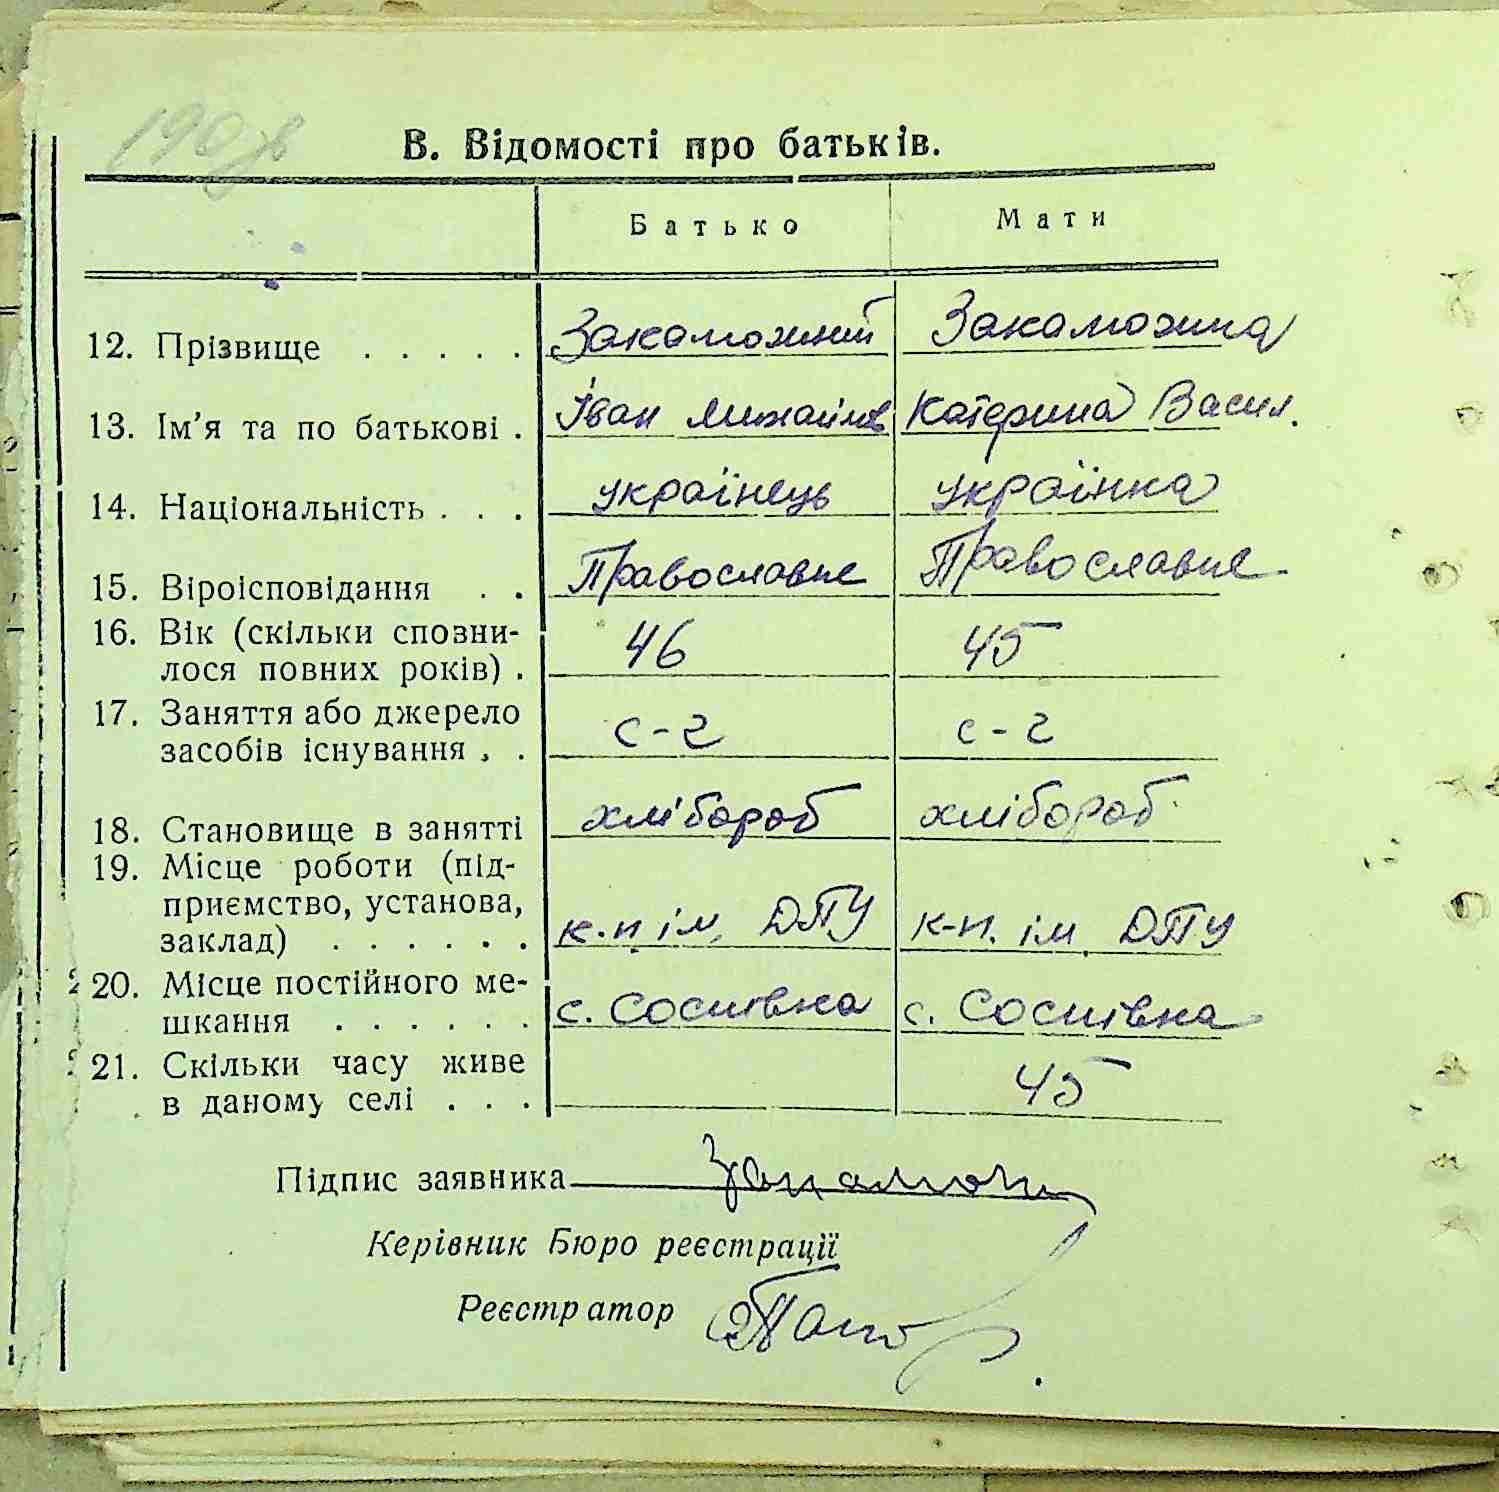 190 зв
В. Відомості про батьків.
Батько Мати
12. Прізвище . . . . . Закаможний Закаможна
13. Ім'я та по батькові . Іван Михайлов Катерина Васил.
14. Національність . . . українець українка
15. Віроісповідання . . Православне Православне
16. Вік (скільки сповни-
лося повних років) . 46 45
17. Заняття або джерело
засобів існування . . с-г с-г
18. Становище в занятті хлібороб хлібороб
19. Місце роботи (під-
приємство, установа,
заклад) . . . . . . к.п. ім. ДПУ к-п. ім. ДПУ
20. Місце постійного ме-
шкання . . . . . . с. Соснівка с. Соснівка
21. Скільки часу живе
в даному селі . . . 45
Підпис заявника
Керівник Бюро реєстрації
Реєстратор